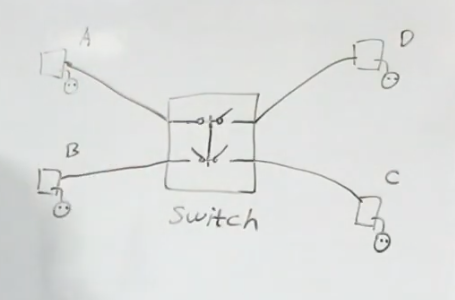 A
D
B
C
Switch